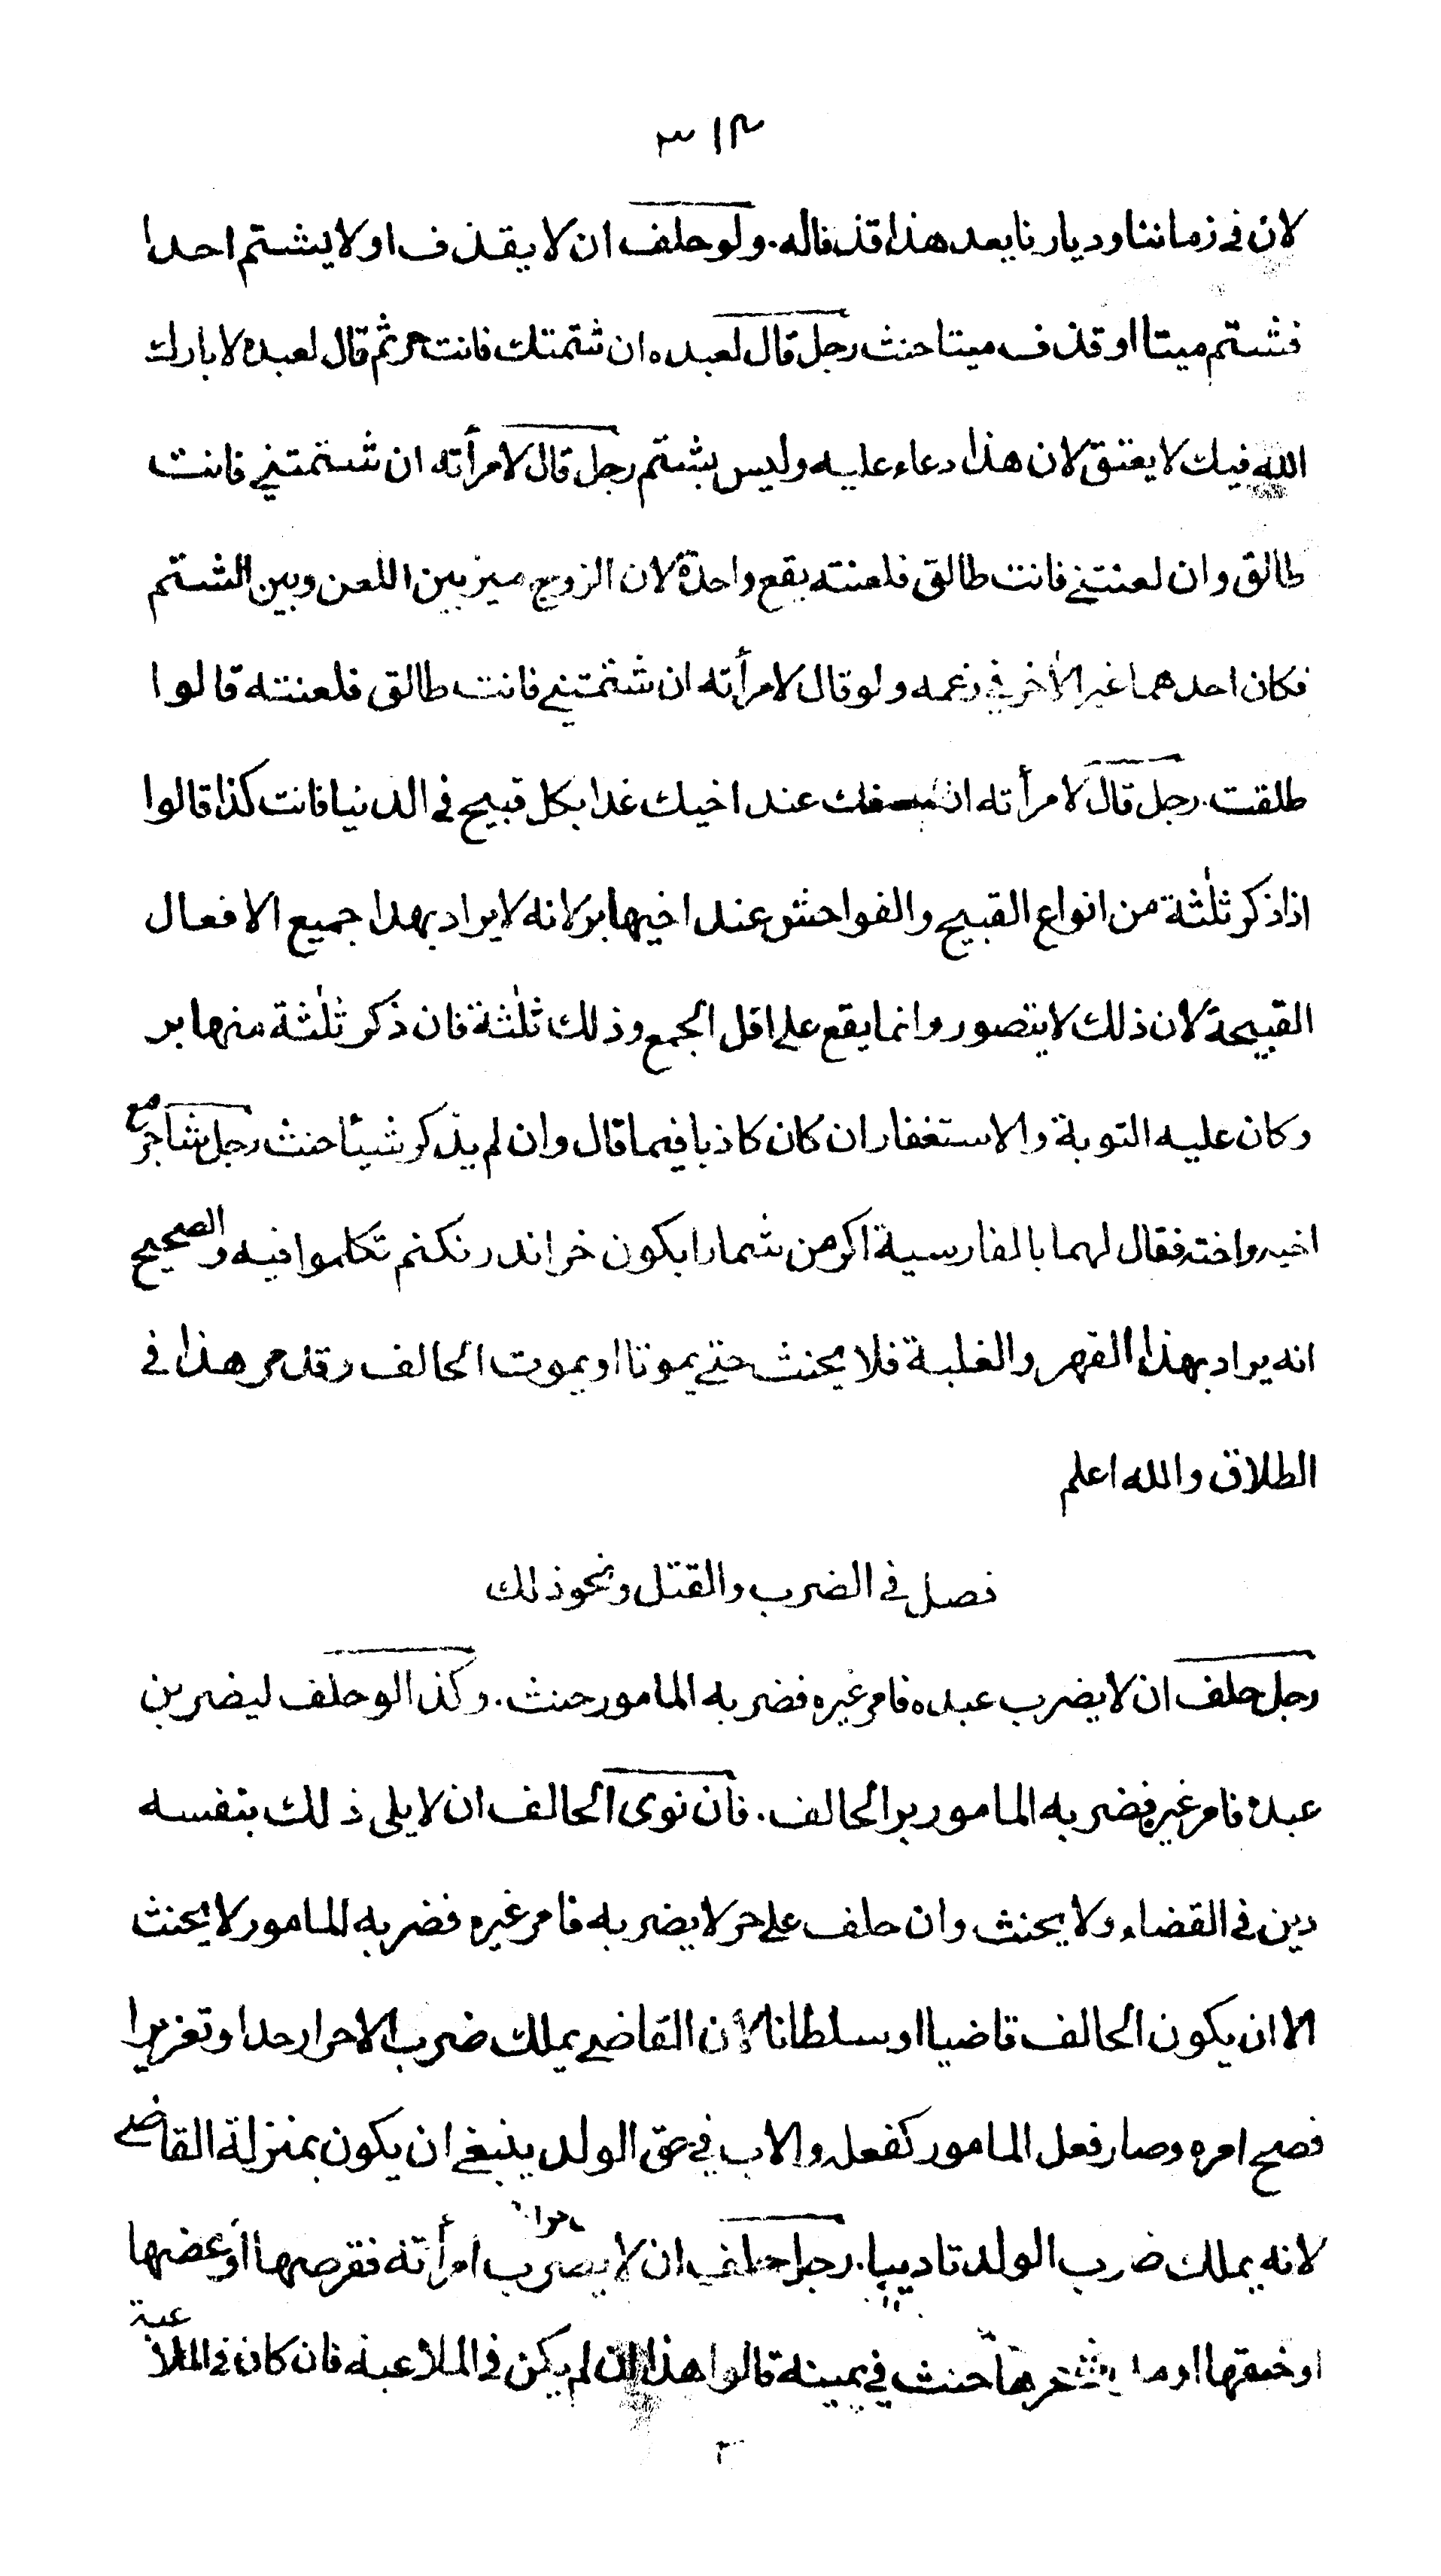 ٣١٣
لان في زماننا وديارنا يعد هذا قذفا له. ولو حلف ان لا يقذف او لا يشتم احدا
فشتم ميتا او قذف ميتا حنث رجل قال لعبده ان شتمتك فانت حر ثم قال لعبده لا بارك
الله فيك لا يعتق لان هذا دعاء عليه وليس بشتم رجل قال لامرأته ان شتمتني فانت
طالق وان لعنتني فانت طالق فلعنته يقع واحدة لان الزوج ميز بين اللعن وبين الشتم
فكان احدهما غير الاخر في زعمه ولو قال لامرأته ان شتمتني فانت طالق فلعنته قالوا
طلقت. رجل قال لامرأته ان عند اخيك غدا بكل قبيح في الدنيا فانت كذا قالوا
اذا ذكر ثلثة من انواع القبيح والفواحش عند اخيها بر لانه لا يراد بهذا جميع الافعال
القبيحة لان ذلك لا يتصور وانما يقع على اقل الجمع وذلك ثلثة فان ذكر ثلثة منها بر
وكان عليه التوبة والاستغفار ان كان كاذبا فيما قال وان لم يذكر شيئا حنث رجل شاجر مع
اخيه واخته فقال لهما بالفارسية اكر من شمارا بكون خر اندر نكنم تكلموا فيه والصحيح
انه يراد بهذا القهر والغلبة فلا يحنث حتى يموتا او يموت الحالف وقد مر هذا في
الطلاق والله اعلم
فصل في الضرب والقتل ونحو ذلك
رجل حلف ان لا يضرب عبده فامر غيره فضربه المامور حنث. وكذا لو حلف ليضربن
عبده فامر غيره فضربه المامور بر الحالف. فان نوى الحالف ان لا يلي ذلك بنفسه
دين في القضاء ولا يحنث وان حلف على حر لا يضربه فامر غيره فضربه المامور لا يحنث
الا ان يكون الحالف قاضيا او سلطانا لان القاضي يملك ضرب الاحرار حدا وتعزيرا
فصح امره وصار فعل المامور كفعله والاب في حق الولد ينبغي ان يكون بمنزلة القاضي
لانه يملك ضرب الولد تاديبا. رجل حلف ان لا يضرب امرأته فقرصها او عضها
او خنقها او مد شعرها حنث في يمينه قالوا هذا ان لم يكن في الملاعبة فان كان في الملاعبة